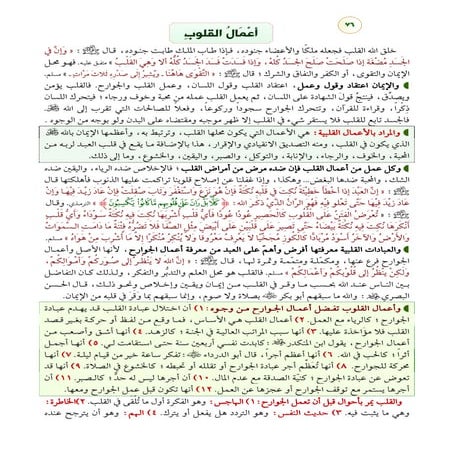 ٧٦
أعمال القلوب
خلق الله القلب فجعله ملكًا والأعضاء جنوده، فإذا طاب الملك طابت جنوده، قال ﷺ: «وَإِنَّ فِي
الجَسَدِ مُضْغَةً إِذَا صَلَحَتْ صَلَحَ الجَسَدُ كُلُّهُ، وَإِذَا فَسَدَتْ فَسَدَ الجَسَدُ كُلُّهُ أَلَا وَهِيَ القَلْبُ» متفق عليه. فهو محل
الإيمان والتقوى، أو الكفر والنفاق والشرك؛ قال ﷺ: «التَّقْوَى هَاهُنَا، وَيُشِيرُ إِلَى صَدْرِهِ ثَلَاثَ مَرَّاتٍ» مسلم.
والإيمان اعتقاد وقول وعمل، اعتقاد القلب وقول اللسان، وعمل القلب والجوارح. فالقلب يؤمن
ويصدّق، فينتج قول الشهادة على اللسان، ثم يعمل القلب عمله من محبة وخوف ورجاء؛ فيتحرك اللسان
ذكرًا، وقراءة للقرآن، وتتحرك الجوارح سجودًا وركوعًا، وفعلا للصالحات التي تقرب إلى الله.
فالجسد تابع للقلب فلا يستقر شيء في القلب إلا ظهر موجبه ومقتضاه على البدن ولو بوجه من الوجوه.
والمراد بالأعمال القلبية: هي الأعمال التي يكون محلها القلب، وترتبط به، وأعظمها الإيمان بالله
الذي يكون في القلب، ومنه التصديق الانقيادي والإقرار، هذا بالإضافة ما يقع في قلب العبد لربه من
المحبة، والخوف، والرجاء، والإنابة، والتوكل، والصبر، واليقين، والخشوع، وما إلى ذلك.
وكل عمل من أعمال القلب فإن ضده مرض من أمراض القلب: فالإخلاص ضده الرياء، واليقين ضده
الشك، والمحبة ضدها البغض.. وهكذا، وإذا غفلنا عن إصلاح قلوبنا تراكمت عليها الذنوب فأهلكتها قال
ﷺ: «إِنَّ العَبْدَ إِذَا أَخْطَأَ خَطِيئَةً نُكِتَتْ فِي قَلْبِهِ نُكْتَةٌ فَإِنْ هُوَ نَزَعَ وَاسْتَغْفَرَ وَتَابَ صُقِلَتْ فَإِنْ عَادَ زِيدَ فِيهَا وَإِنْ
عَادَ زِيدَ فِيهَا حَتَّى تَعْلُوَ فِيهِ فَهُوَ الرَّانُ الَّذِي ذَكَرَ اللهُ ﴿كَلَّا بَلْ رَانَ عَلَى قُلُوبِهِم مَّا كَانُوا يَكْسِبُونَ﴾» الترمذي. وقال
ﷺ: «تُعْرَضُ الفِتَنُ عَلَى القُلُوبِ كَالحَصِيرِ عُودًا عُودًا فَأَيُّ قَلْبٍ أُشْرِبَهَا نُكِتَ فِيهِ نُكْتَةٌ سَوْدَاءُ وَأَيُّ قَلْبٍ
أَنْكَرَهَا نُكِتَ فِيهِ نُكْتَةٌ بَيْضَاءُ حَتَّى تَصِيرَ عَلَى قَلْبَيْنِ عَلَى أَبْيَضَ مِثْلِ الصَّفَا فَلَا تَضُرُّهُ فِتْنَةٌ مَا دَامَتِ السَّمَوَاتُ
وَالأَرْضُ وَالآخَرُ أَسْوَدُ مُرْبَادًّا كَالكُوزِ مُجَخِّيًا لَا يَعْرِفُ مَعْرُوفًا وَلَا يُنْكِرُ مُنْكَرًا إِلَّا مَا أُشْرِبَ مِنْ هَوَاهُ» مسلم.
والعبادات القلبية معرفتها أفرض وأهم على العبد من معرفة أعمال الجوارح، لأنها الأصل وأعمال
الجوارح فرع عنها، ومكملة ومتممة وثمرة لها، قال ﷺ: «إِنَّ اللهَ لَا يَنْظُرُ إِلَى صُوَرِكُمْ وَأَمْوَالِكُمْ،
وَلَكِنْ يَنْظُرُ إِلَى قُلُوبِكُمْ وَأَعْمَالِكُمْ» مسلم. فالقلب هو محل العلم والتدبر والتفكر، ولذلك كان التفاضل
بين الناس عند الله بحسب ما وقر في القلب من إيمان ويقين وإخلاص ونحو ذلك، قال الحسن
البصري: والله ما سبقهم أبو بكر بصلاة ولا صوم، وإنما سبقهم بما وقر في قلبه من الإيمان.
وأعمال القلوب تفضل أعمال الجوارح من وجوه: ١) أن اختلال عبادة القلب قد يهدم عبادة
الجوارح؛ كالرياء مع العمل. ٢) أعمال القلب هي الأساس، فما وقع من لفظ أو حركة بغير قصد
القلب فلا مؤاخذة عليها. ٣) أنها سبب المراتب العالية في الجنة؛ كالزهد. ٤) أنها أشق وأصعب من
أعمال الجوارح، يقول ابن المنكدر: كابدت نفسي أربعين سنة حتى استقامت لي. ٥) أنها أجمل
أثرًا؛ كالحب في الله. ٦) أنها أعظم أجرًا، قال أبو الدرداء: تفكر ساعة خير من قيام ليلة. ٧) أنها
محركة للجوارح. ٨) أنها تُعظّم أجر عبادة الجوارح أو تقلله أو تحبطه؛ كالخشوع في الصلاة. ٩) أنها قد
تعوض عن عبادة الجوارح؛ كنية الصدقة مع عدم المال. ١٠) أن أجرها ليس له حد؛ كالصبر. ١١) أن
أجرها يستمر مع توقف الجوارح أو عجزها عن العمل. ١٢) أنها تكون قبل عمل الجوارح ومعها.
والقلب يمر بأحوال قبل أن تعمل الجوارح: ١) الهاجس: وهو الفكرة أول ما تُلقى في القلب. ٢) الخاطرة:
وهي ما يثبت فيه. ٣) حديث النفس: وهو التردد هل يفعل أو يترك. ٤) الهم: وهو أن يترجح عنده